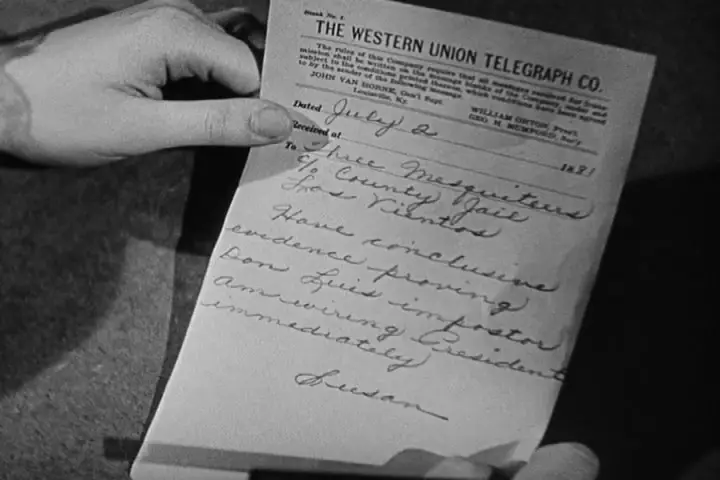 Blank No. 1.
THE WESTERN UNION TELEGRAPH CO.
The rules of this Company require that all messages received for trans-
mission shall be written on the message blanks of the Company, under and
subject to the conditions printed thereon, which conditions have been agreed
to by the sender of the following message.
JOHN VAN HORNE, Gen'l Supt.
Louisville, Ky.
WILLIAM ORTON, Pres't
GEO. H. MUMFORD, Sec'y
Dated July 2 1881
Received at
To Three Mesquiteers
c/o County Jail
Las Vientos
Have conclusive
evidence proving
Don Luis impostor
am wiring President
immediately
Susan